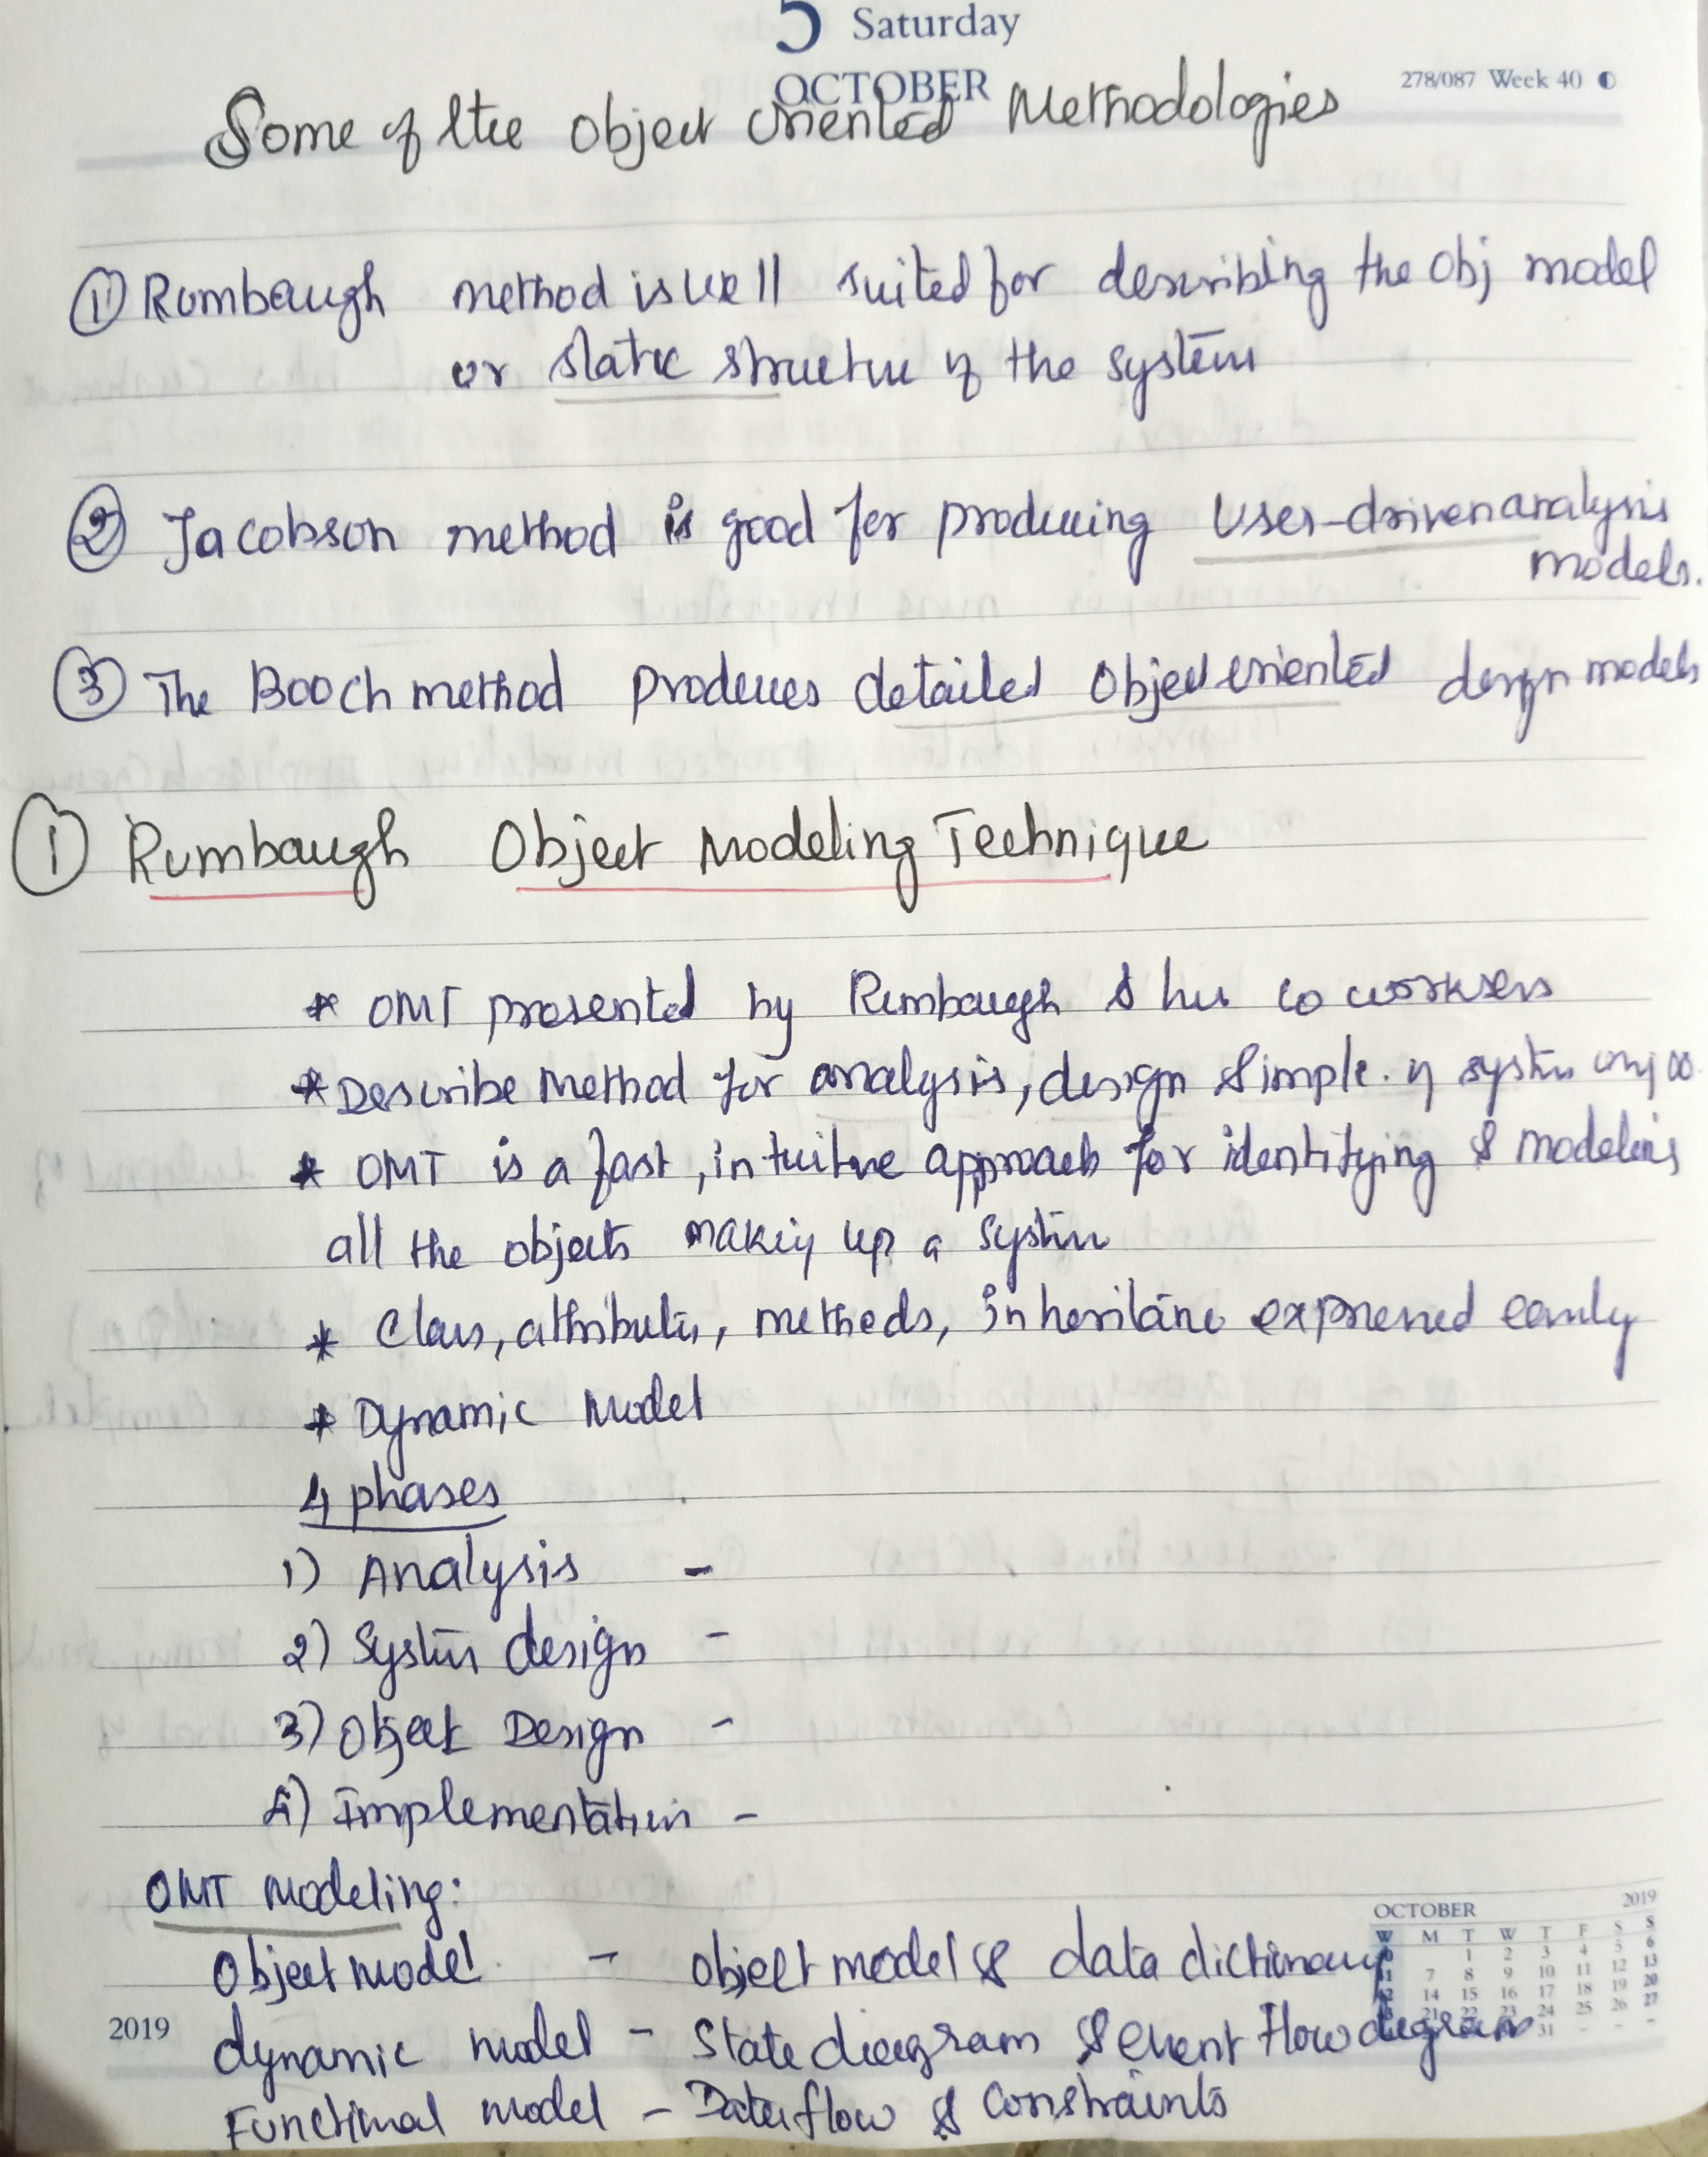 5 Saturday
OCTOBER
278/087 Week 40
Some of the Object Oriented Methodologies
① Rumbaugh method is well suited for describing the Obj model
or static structure of the system
② Jacobson method is good for producing User-driven analysis
models.
③ The Booch method produces detailed Object oriented design models
① Rumbaugh Object Modeling Technique
* OMT presented by Rumbaugh & his co workers
* Describe Method for analysis, design & imple. of system using OO.
* OMT is a fast, intuitive approach for identifying & modeling
all the objects making up a system
* Class, attributes, methods, inheritance expressed easily
* Dynamic Model
4 phases
1) Analysis -
2) System design -
3) Object Design -
4) Implementation -
OMT modeling:
Object model - object model & data dictionary
dynamic model - State diagram & event flow diagram
Functional model - Data flow & constraints
2019
OCTOBER 2019
W M T W T F S S
1 2 3 4 5 6
7 8 9 10 11 12 13
14 15 16 17 18 19 20
21 22 23 24 25 26 27
31 - - -